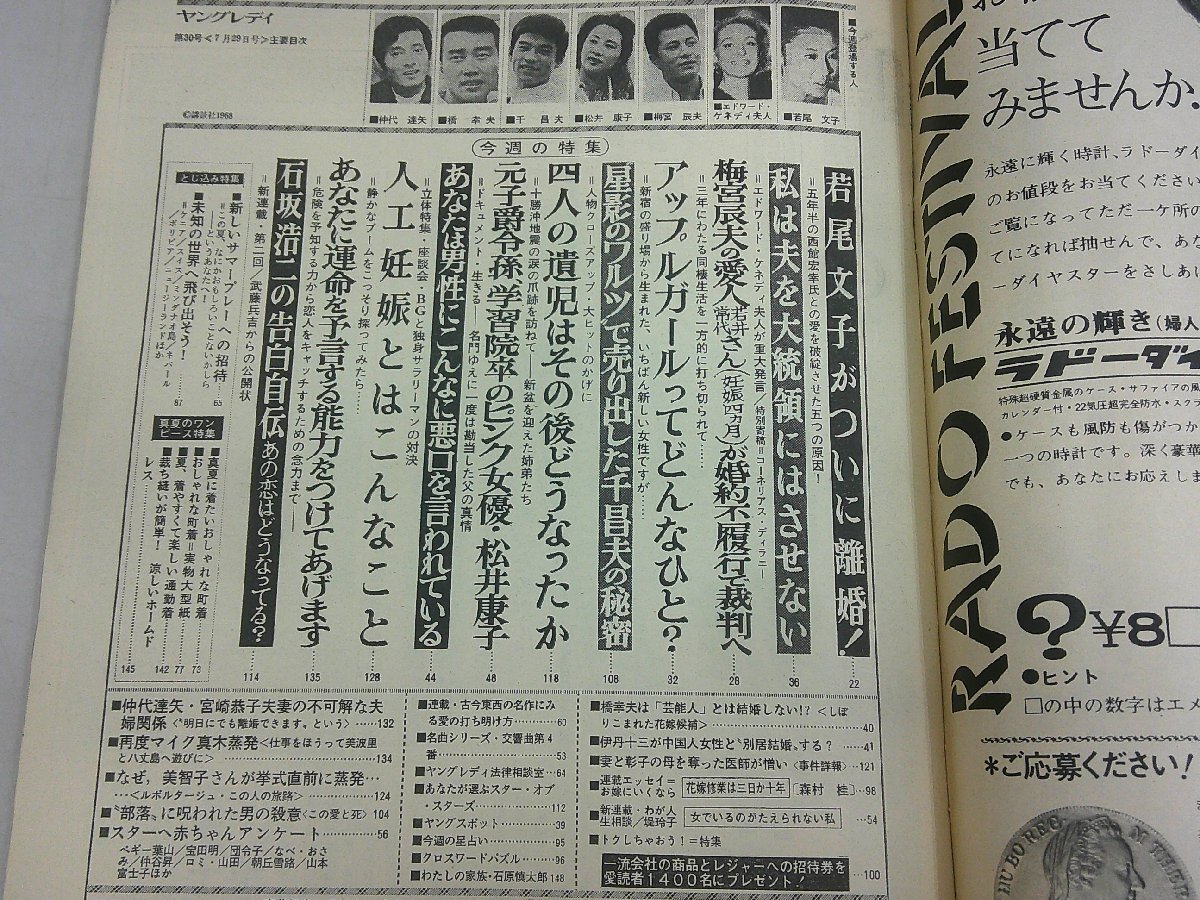 ヤングレディ
第30号<7月29日号>主要目次
©講談社1968
■今週登場する人
■仲代 達矢
■橋 幸夫
■千 昌夫
■松井 康子
■梅宮 辰夫
■エドワード・
ケネディ夫人
■若尾 文子
今週の特集
若尾文子がついに離婚!
=五年半の西館宏幸氏との愛を破綻させた五つの原因!
22
私は夫を大統領にはさせない
=エドワード・ケネディ夫人が重大発言/特別寄稿=コーネリアス・ディラニー
36
梅宮辰夫の愛人、若井常代さん(妊娠四カ月)が婚約不履行で裁判へ
=三年にわたる同棲生活を一方的に打ち切られて……
28
アップルガールってどんなひと?
=新宿の盛り場から生まれた、いちばん新しい女性ですが……
32
星影のワルツで売り出した千昌夫の秘密
=人物クローズアップ・大ヒットのかげに
108
四人の遺児はその後どうなったか
=十勝沖地震の涙の爪跡を訪ねて——新盆を迎えた姉弟たち
118
元子爵令孫、学習院卒のピンク女優・松井康子
=ドキュメント・生きる——名門ゆえに一度は勘当した父の真情
48
あなたは男性にこんなに悪口を言われている
=立体特集 座談会・BGと独身サラリーマンの対決
44
人工妊娠とはこんなこと
=静かなブームをこっそり探ってみたら……
128
あなたに運命を予言する能力をつけてあげます
=危険を予知する力から恋人をキャッチするための念力まで——
135
石坂浩二の告白自伝 あの恋はどうなってる?
=新連載・第二回/武藤兵吉からの公開状
114
とじ込み特集
■新しいサマープレーへの招待
=この夏、なにかおもしろいことないかしら
——というあなたへ!
65
■未知の世界へ飛び出そう!
=ケニア/スイス/ミンダナオ島/ネパール
/ボリビア/ニュージーランドほか
87
真夏のワンピース特集
■真夏に着たいおしゃれな町着
73
■おしゃれな町着=実物大型紙
77
■夏、着やすくて楽しい通勤着
142
■裁ち縫いが簡単! 涼しいホームドレス
145
■仲代達矢・宮崎恭子夫妻の不可解な夫
婦関係<〝明日にでも離婚できます〟という>……132
■再度マイク真木蒸発<仕事をほうって美波里
と八丈島へ遊びに>……134
■なぜ,美智子さんが挙式直前に蒸発…
…<ルポルタージュ・この人の旅路>……124
■〝部落〟に呪われた男の殺意<この愛と死>104
■スターへ赤ちゃんアンケート……56
ペギー葉山/宝田明/団令子/なべ・おさ
み/仲谷昇/ロミ・山田/朝丘雪路/山本
富士子ほか
■連載・古今東西の名作にみ
る愛の打ち明け方……60
■名曲シリーズ・交響曲第4
番……53
■ヤングレディ法律相談室…64
■あなたが選ぶスター・オブ
・スターズ……112
■ヤングスポット……39
■今週の星占い……95
■クロスワードパズル……96
■わたしの家族・石原慎太郎148
■橋幸夫は「芸能人」とは結婚しない!?<しぼ
りこまれた花嫁候補>……40
■伊丹十三が中国人女性と〝別居結婚〟する?…41
■妻と彰子の母を奪った医師が憎い<事件詳報>…121
■連載エッセイ=
お嫁にいくなら 花嫁修業は三日か十年 [森村 桂]…98
■新連載・わが人
生相談/堤玲子 女でいるのがたえられない私 …54
■トクしちゃおう!=特集
一流会社の商品とレジャーへの招待券を
愛読者1400名にプレゼント! …100
RADO FESTIVAL
当てて
みませんか。
永遠に輝く時計、ラドーダイ
のお値段をお当てください
ご覧になってただ一ケ所の
てになれば抽せんで、あな
ーダイヤスターをさしあげ
永遠の輝き(婦人
ラドーダイ
特殊超硬質金属のケース・サファイアの風
カレンダー付・22気圧超完全防水・スクラ
●ケースも風防も傷がつか
一つの時計です。深く豪華
でも、あなたにお応えしま
?¥8□
●ヒント
□の中の数字はエメ
*ご応募ください!